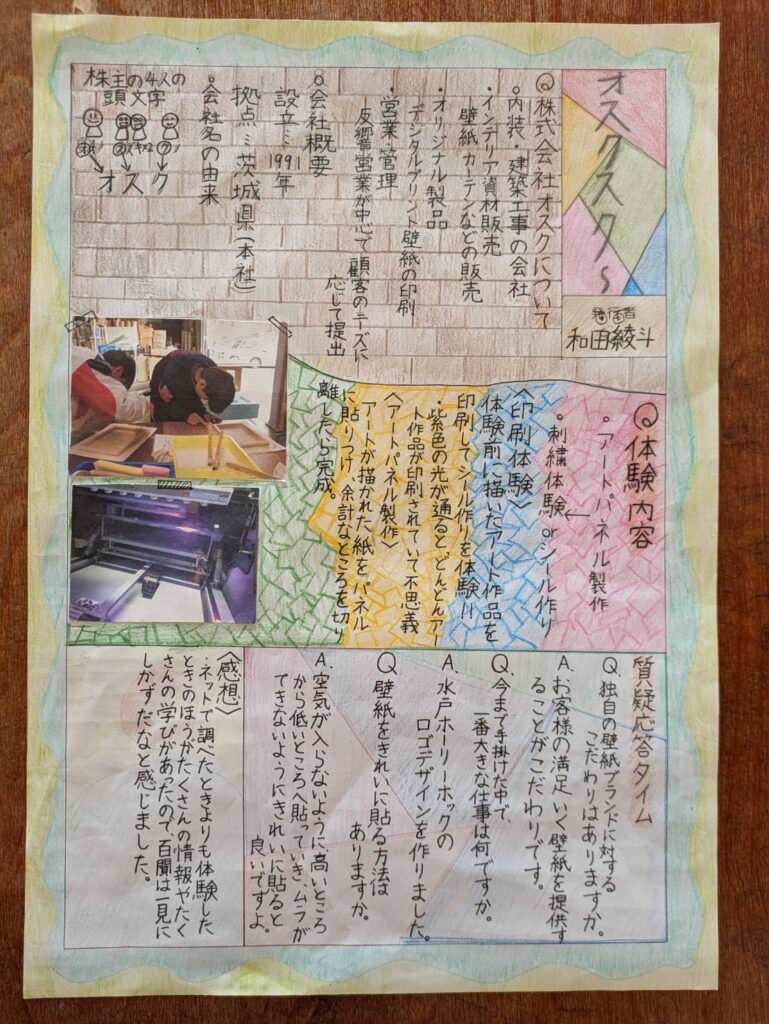 オスクスク〜
発行者
和田綾斗
◎株式会社オスクについて
・内装・建築工事の会社
・インテリア資材販売
壁紙カーテンなどの販売
・オリジナル製品
デジタルプリント壁紙の印刷
・営業・管理
反響営業が中心で顧客のニーズに
応じて提出
◎会社概要
設立…1991年
拠点…茨城県(本社)
◎会社名の由来
株主の4人の
頭文字
オスク
◎体験内容
・アートパネル製作
・刺繍体験orシール作り
〈印刷体験〉
体験前に描いたアート作品を
印刷してシール作りを体験!!
・紫色の光が通ると、どんどんアー
ト作品が印刷されていて不思義
〈アートパネル製作〉
アートが描かれた紙をパネル
に貼りつけ、余計なところを切り
離したら完成。
質疑応答タイム
Q、独自の壁紙ブランドに対する
こだわりはありますか。
A、お客様の満足いく壁紙を提供す
ることがこだわりです。
Q、今まで手掛けた中で、
一番大きな仕事は何ですか。
A、水戸ホーリーホックの
ロゴデザインを作りました。
Q、壁紙をきれいに貼る方法は
ありますか。
A、空気が入らないように高いところ
から低いところへ貼っていき、ムラが
できないようにきれいに貼ると
良いですよ。
〈感想〉
・ネットで調べたときよりも体験した
ときのほうがたくさんの情報やたく
さんの学びがあったので、百聞は一見に
しかずだなと感じました。